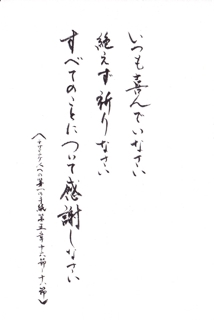 いつも喜んでいなさい
絶えず祈りなさい
すべてのことについて感謝しなさい
〈テサロニケ人への第一の手紙第五章十六節〜十八節〉